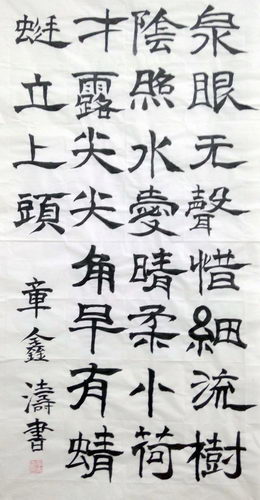 泉眼无聲惜細流樹
陰照水愛晴柔小荷
才露尖尖角早有蜻
蜓立上頭
章鑫濤書